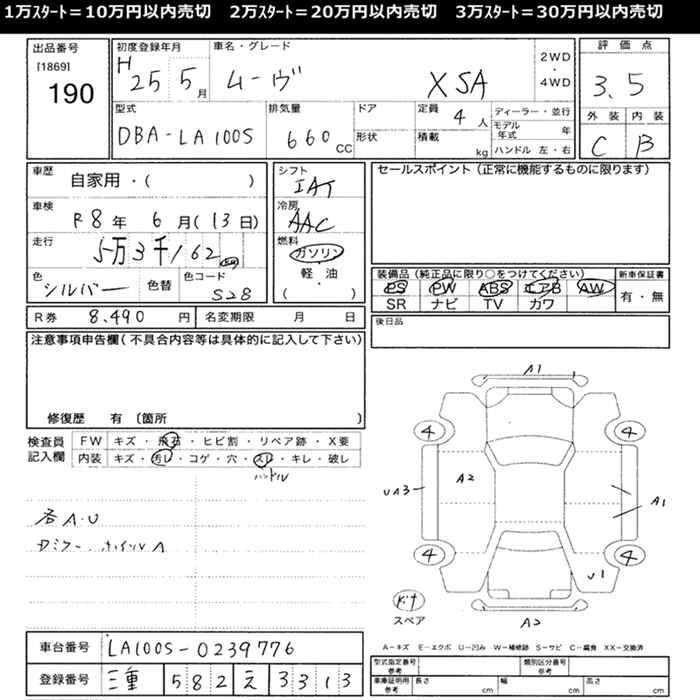 1万スタート=10万円以内売切 2万スタート=20万円以内売切 3万スタート=30万円以内売切
出品番号 初度登録年月 車名・グレード 2WD・4WD 評価点
[1869] 190 H 25 5月 ムーヴ XSA 3.5
型式 排気量 ドア 定員 4人 ディーラー・並行 外装 内装
DBA-LA100S 660CC 形状 積載 kg モデル年式 年 ハンドル 左・右 C B
車歴 自家用・( ) シフト IAT セールスポイント(正常に機能するものに限ります)
車検 R8年 6月(13日) 冷房 AAC
走行 5万3千162km 燃料 ガソリン
色 シルバー 色替 色コード S28 軽・油 ( )
装備品(純正品に限り○をつけてください) 新車保証書
PS PW ABS エアB AW 有・無
SR ナビ TV カワ
R券 8.490円 名変期限 月 日 後日品
注意事項申告欄(不具合内容等は具体的に記入して下さい)
修復歴 有 〔箇所 〕
検査員記入欄 FW キズ・飛石・ヒビ割・リペア跡・X要
内装 キズ・汚レ・コゲ・穴・スレ・キレ・破レ
ハンドル
各A.U
ホイルA
A1
4 4
A2 UA3 A1
4 4
U1
スペア A2
A-キズ E-エクボ U-凹み W-補修跡 S-サビ C-腐食 XX-交換済
車台番号 LA100S-0239776
登録番号 三重 582 え 3313
型式指定番号 参考 類別区分番号 参考
車庫証明用 参考 長さ cm 幅 cm 高さ cm